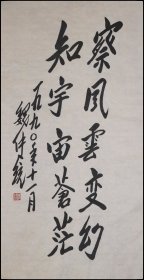 察风云变幻
知宇宙苍茫
一九九〇年十一月
魏传统